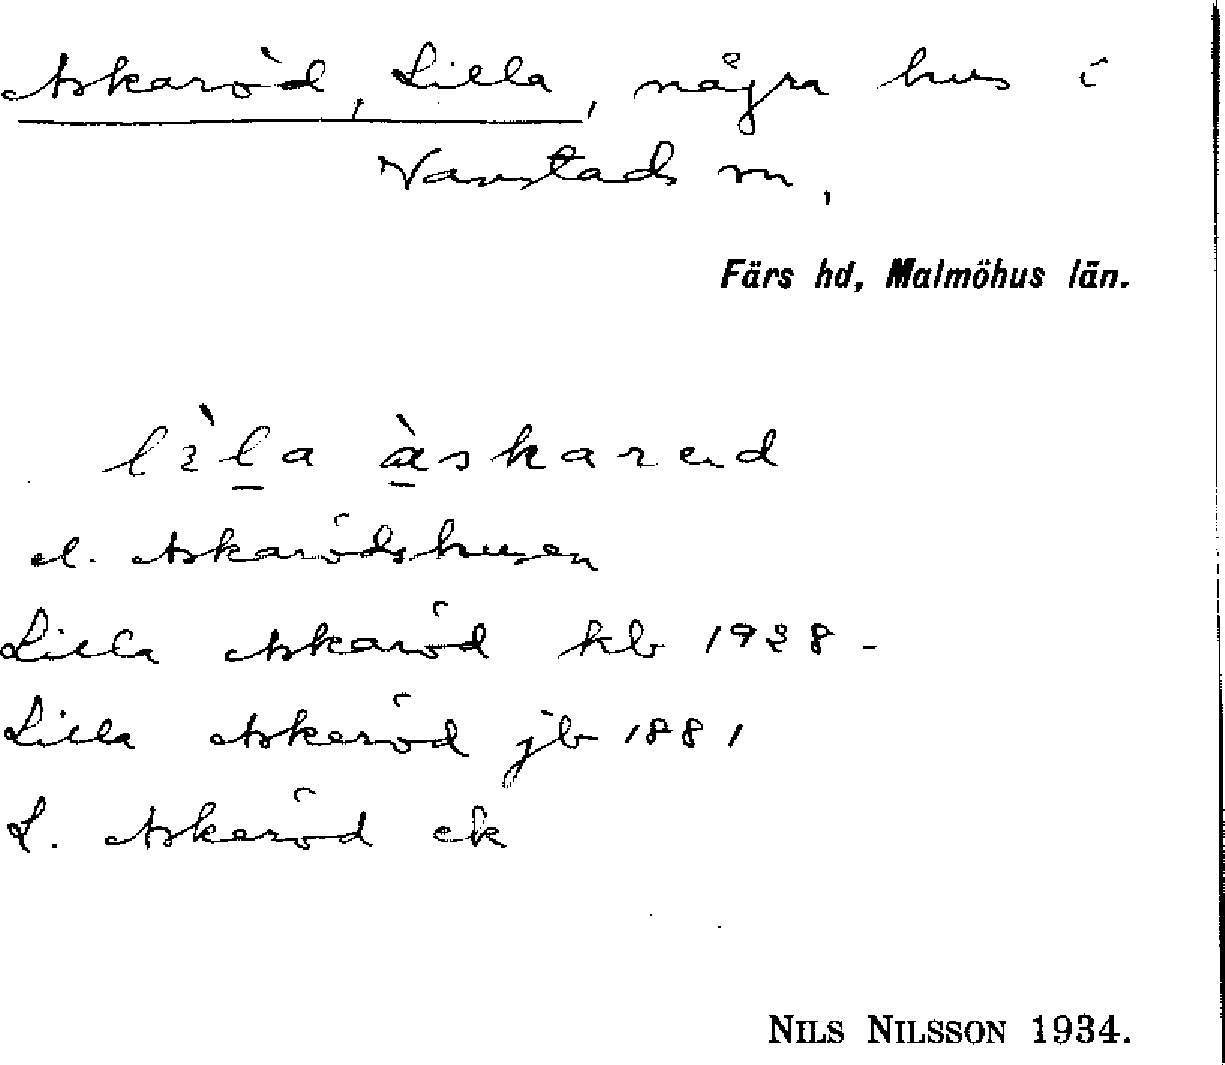 Askaröd, Lilla, några hus i
Vanstads sn,
Färs hd, Malmöhus län.
lìla àskarєd
el. Askarödshusen
Lilla Askaröd kb 1928-
Lilla Askeröd jb 1881
L. Askeröd ek
NILS NILSSON 1934.